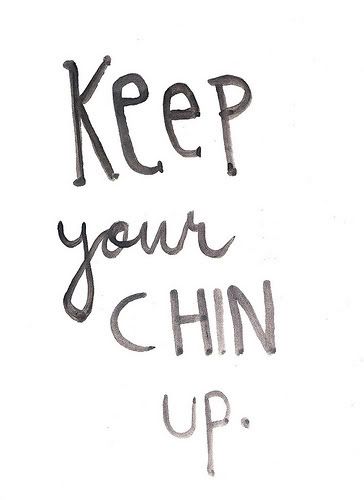 Keep
your
CHIN
UP.